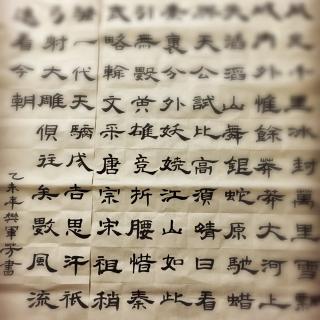 風光千里冰封萬里雪飄
城內外惟餘莽莽大河上
失滔滔山舞銀蛇原馳蠟
與天公試比高須晴日看
素裹分外妖嬈江山如此
引無數英雄競折腰惜秦
武略輸文采唐宗宋祖稍
騷一代天驕成吉思汗祇
弓射大雕俱往矣數風流
還看今朝
乙未年樊軍芳書